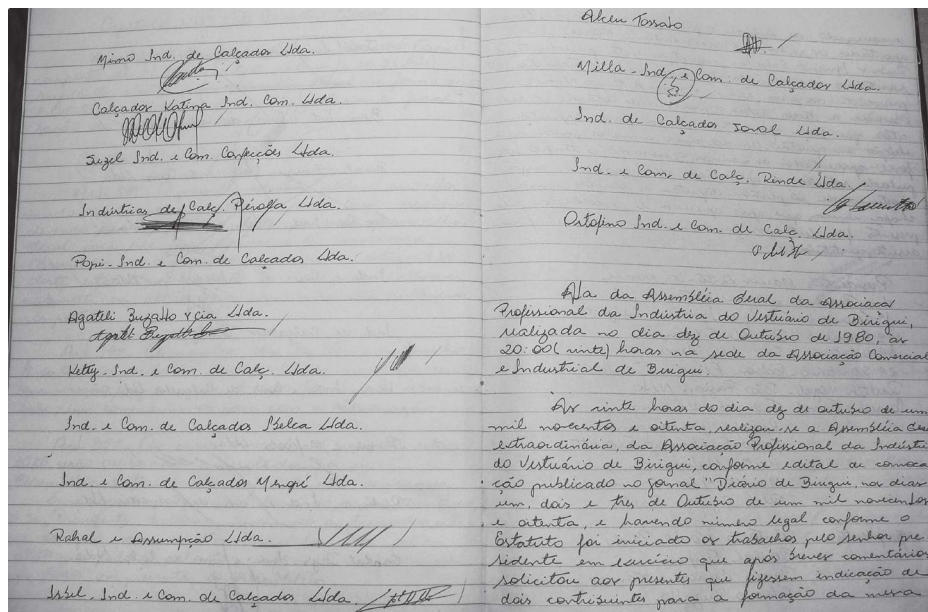 Mimo Ind. de Calçados Ltda.
Calçados Katina Ind. Com. Ltda.
Suzel Ind. e Com. Confecções Ltda.
Indústrias de Calç. Pérolla Ltda.
Popi - Ind. e Com. de Calçados Ltda.
Agatili Buzatto & Cia Ltda.
Ketty - Ind. e Com. de Calç. Ltda.
Ind. e Com. de Calçados Ltda.
Ind. e Com. de Calçados Ltda.
Rahal e Assumpção Ltda.
Ind. e Com. de Calçados Ltda.
Alceu
Milla - Ind. e Com. de Calçados Ltda.
Ind. de Calçados Ltda.
Ind. e Com. de Calç. Rinde Ltda.
Ortofino Ind. e Com. de Calç. Ltda.
Ata da Assembléia Geral da Associaçã
Profissional da Indústria do Vestuário de Birigui,
realizada no dia dez de Outubro de 1980, as
20:00 (vinte) horas na sede da Associação Comercial
e Industrial de Birigui.
As vinte horas do dia dez de outubro de um
mil novecentos e oitenta, realizou-se a Assembléia
extraordinária, da Associação Profissional da Indústri
do Vestuário de Birigui, conforme edital de convoca
ção publicado no jornal "Diário de Birigui, nos dias
um, dois e tres de Outubro de um mil novecentos
e oitenta, e havendo número legal conforme o
Estatuto foi iniciado os trabalhos pelo senhor pre
sidente em exercício que após breves comentários
solicitou aos presentes que fizessem indicação de
dois contribuintes para a formação da mesa